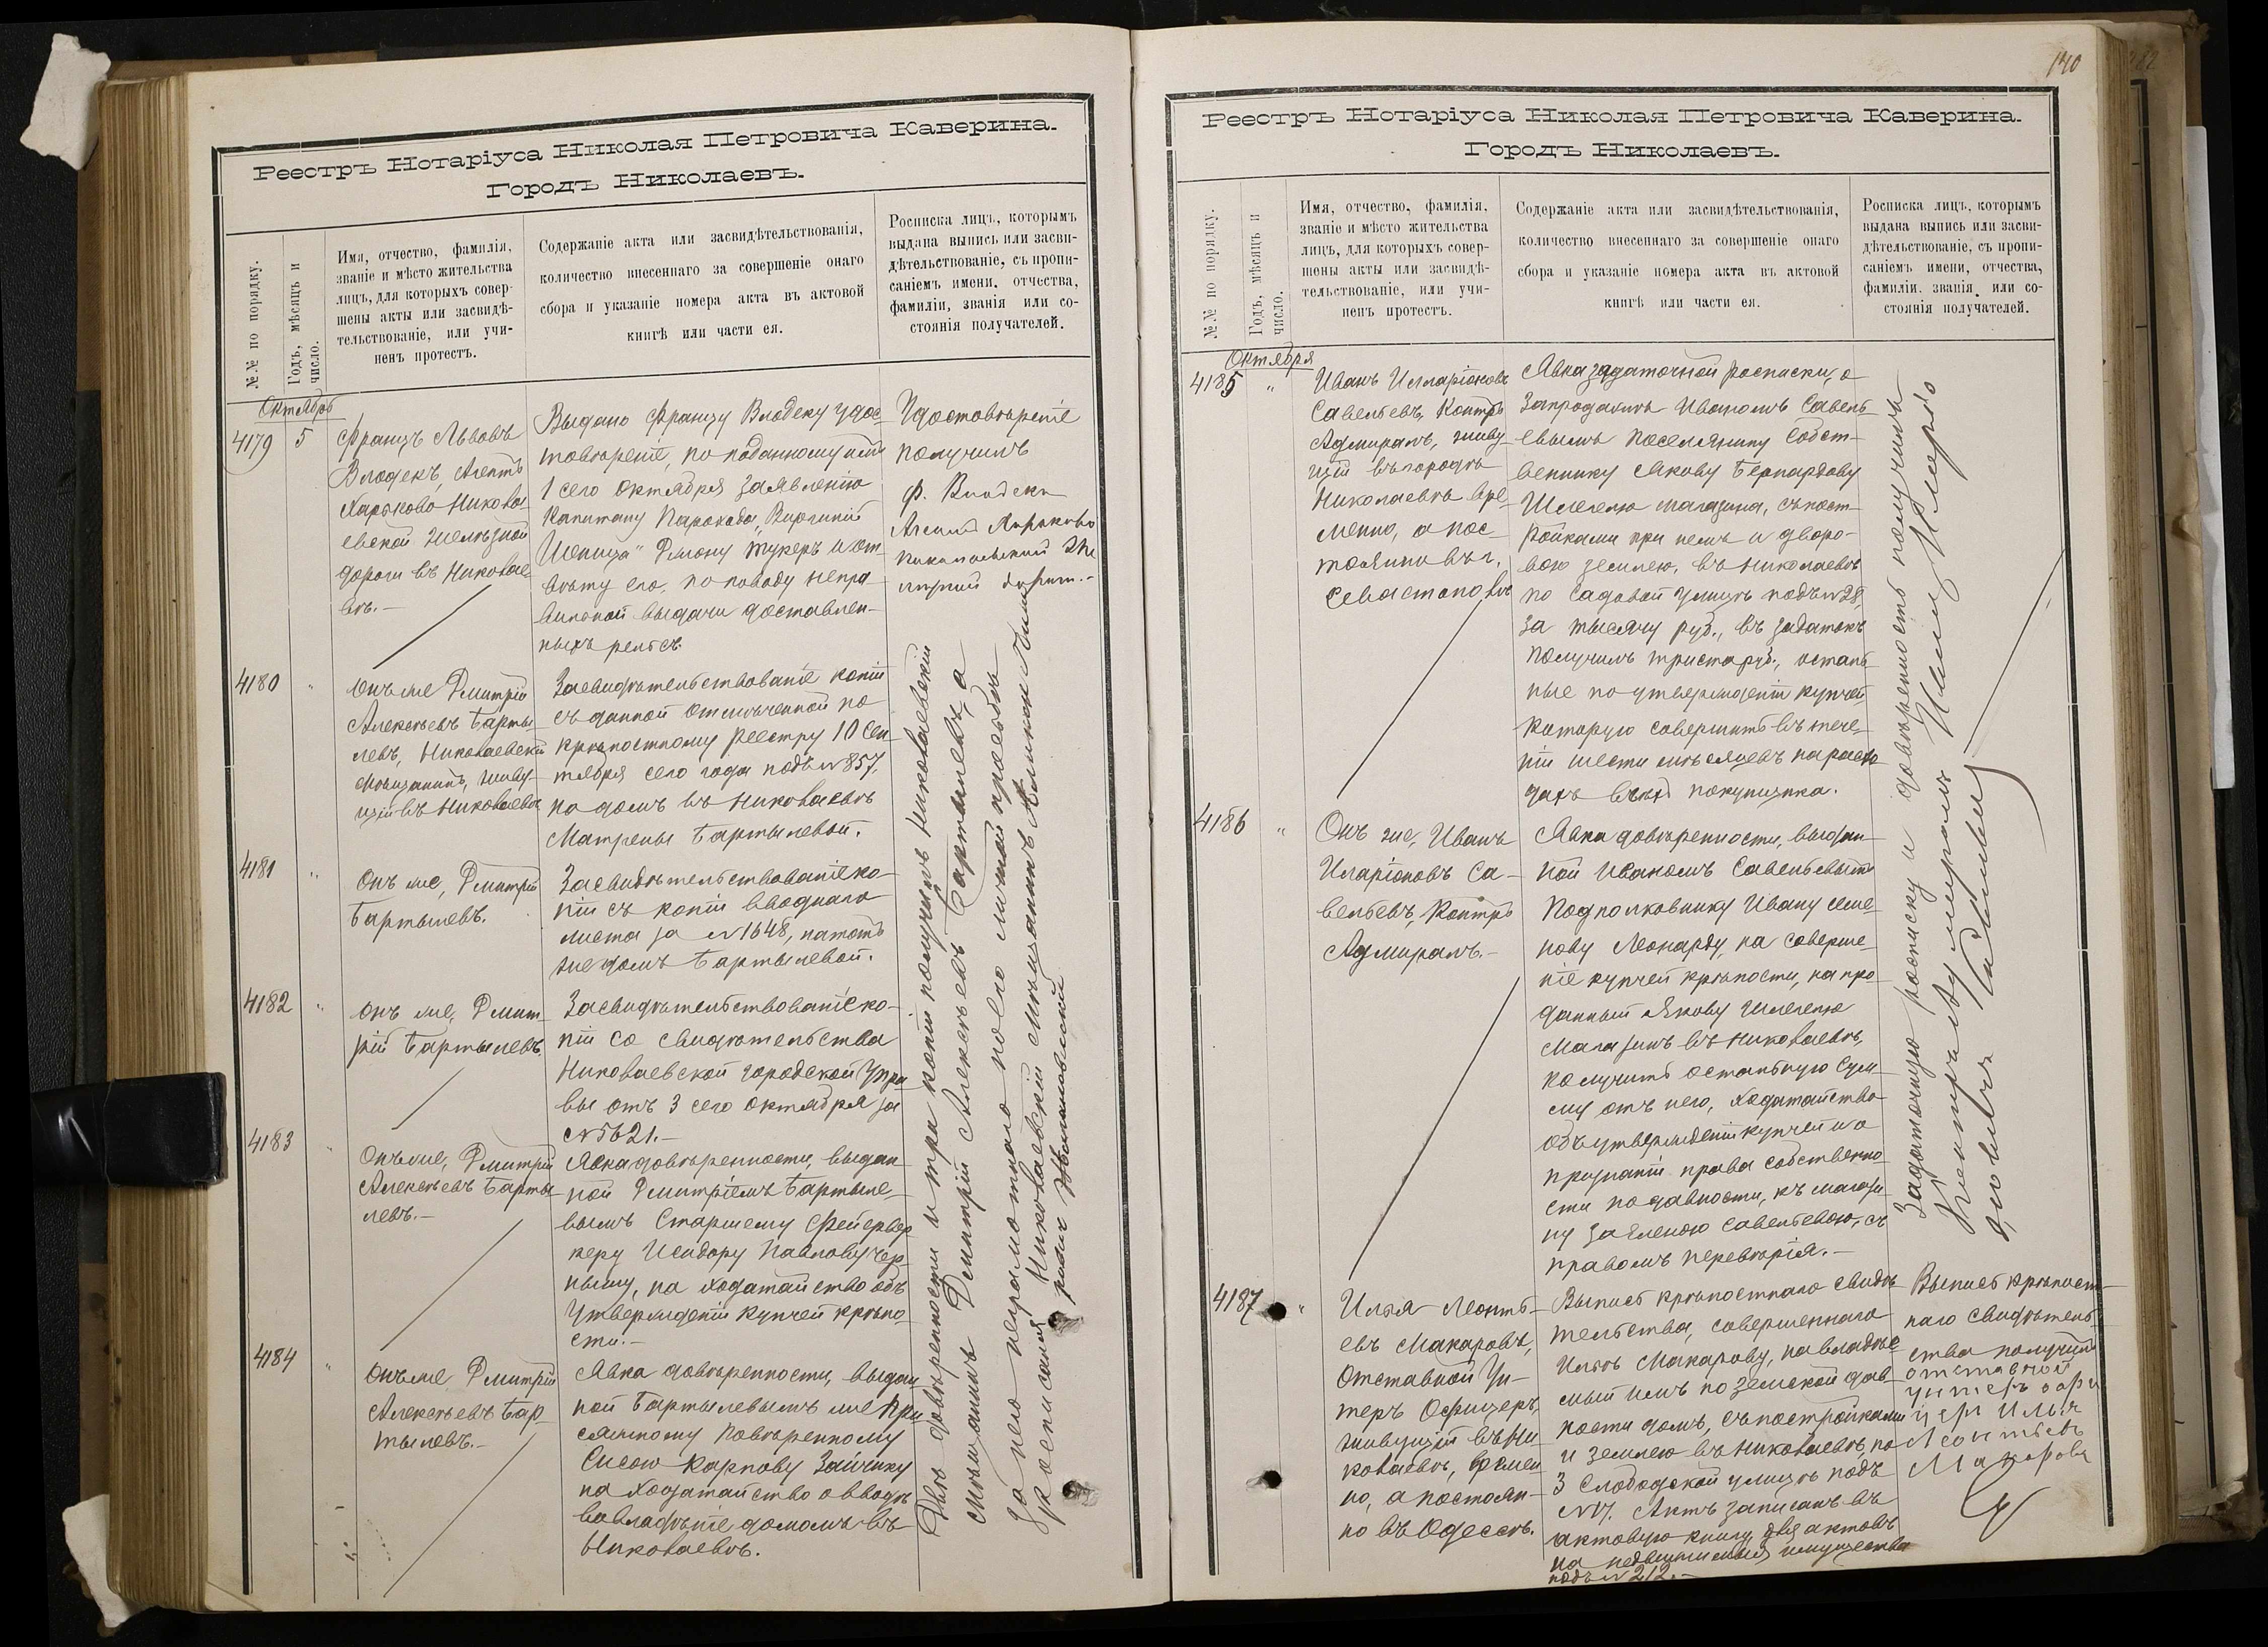 Реестръ Нотаріуса Николая Петровича Каверина.
Городъ Николаевъ.
№№ по порядку.
Годъ, мѣсяцъ и
число.
Имя, отчество, фамилія,
званіе и мѣсто жительства
лицъ, для которыхъ совер-
шены акты или засвидѣ-
тельствованіе, или учи-
ненъ протестъ.
Содержаніе акта или засвидѣтельствованія,
количество внесеннаго за совершеніе онаго
сбора и указаніе номера акта въ актовой
книгѣ или части ея.
Росписка лицъ, которымъ
выдана выпись или засви-
дѣтельствованіе, съ пропи-
саніемъ имени, отчества,
фамиліи, званія или со-
стоянія получателей.
Октябрь
4179
5
Францъ Львовъ
Влодекъ, Агентъ
Харьково-Никола-
евской желѣзной
дороги въ Николае-
вѣ.-
Выдано Францу Влодеку удос-
товѣреніе, по поданному имъ
1 сего Октября заявленію
Капитану Парохода „Виргиній
Шепица" Эдмону Тукеръ и от-
вѣту его, по поводу непра-
вильной выдачи доставлен-
ныхъ рельсъ.
Удостовѣреніе
получилъ
Ф. Влодекъ
Агентъ Харьково
Николаевской Же
лѣзной дороги.-
4180
"
Онъ же Дмитрій
Алексѣевъ Барты-
левъ, Николаевскій
Мѣщанинъ, живу-
щій въ Николаевѣ
Засвидѣтельствованіе копіи
съ данной отмѣченной по
крѣпостному реестру 10 Сен-
тября сего года подъ №857,
на домъ въ Николаевѣ
Матрены Бартылевой.
4181
"
Онъ же, Дмитрій
Бартылевъ.
Засвидѣтельствованіе ко-
піи съ копіи вводнаго
листа за №1648, на тотъ
же домъ Бартылевой.
4182
"
Онъ же, Дмит-
рій Бартылевъ.
Засвидѣтельствованіе ко-
піи со свидѣтельства
Николаевской Городской Упра
вы отъ 3 сего Октября за
№5621.-
4183
"
Онъ же, Дмитрій
Алексѣевъ Барты-
левъ.-
Явка довѣренности, выдан-
ной Дмитріемъ Бартыле-
вымъ Старшему Фейервер
керу Исидору Павлову Чер-
ныму, на ходатайство объ
утвержденіи купчей крѣпо-
сти.-
4184
"
Онъ же Дмитрій
Алексѣевъ Бар-
тылевъ.-
Явка довѣренности, выдан-
ной Бартылевымъ же При-
сяжному Повѣренному
Сысою Карпову Зайчику
на ходатайство о вводѣ
во владѣніе домомъ въ
Николаевѣ.
Двѣ довѣренности и три копіи получилъ Николаевскій
мѣщанинъ Дмитрій Алексѣевъ Бартылевъ, а
за него неграмотнаго по его личной просьбѣ
росписался Николаевскій мѣщанинъ
Реестръ Нотаріуса Николая Петровича Каверина.
Городъ Николаевъ.
№№ по порядку.
Годъ, мѣсяцъ и
число.
Имя, отчество, фамилія,
званіе и мѣсто жительства
лицъ, для которыхъ совер-
шены акты или засвидѣ-
тельствованіе, или учи-
ненъ протестъ.
Содержаніе акта или засвидѣтельствованія,
количество внесеннаго за совершеніе онаго
сбора и указаніе номера акта въ актовой
книгѣ или части ея.
Росписка лицъ, которымъ
выдана выпись или засви-
дѣтельствованіе, съ пропи-
саніемъ имени, отчества,
фамиліи, званія, или со-
стоянія получателей.
Октября
4185
"
Иванъ Илларіоновъ
Савельевъ, Контръ
Адмиралъ, живу-
щій въ городѣ
Николаевѣ вре-
менно, а пос-
тоянно въ г.
Севастополѣ
Явка задаточной росписки, о
запродажѣ Иваномъ Савель-
евымъ поселянину собст-
веннику Якову Бернардову
Шлегелю магазина, съ пост-
ройками при немъ и дворо-
вою землею, въ Николаевѣ
по Садовой улицѣ подъ №28,
за тысячу руб., въ задатокъ
получилъ триста руб., осталь-
ные по утвержденіи купчей,
которую совершить въ тече-
ніи шести мѣсяцевъ на расхо
дахъ покупщика.
4186
"
Онъ же, Иванъ
Иларіоновъ Са-
вельевъ, Контръ
Адмиралъ.-
Явка довѣренности, выдан-
ной Иваномъ Савельевымъ
Подполковнику Ивану Семе-
нову Леонарду, на соверше-
ніе купчей крѣпости, на про
данный Якову Шлегелю
магазинъ въ Николаевѣ,
получить остальную сум-
му отъ него, ходатайство
объ утвержденіи купчей и о
признаніи права собственно-
сти по давности, къ магази-
ну за Еленою Савельевою, съ
правомъ передовѣрія.-
Задаточную росписку и довѣренность получилъ
Контръ Адмиралъ
4187
"
Илья Леонть-
евъ Макаровъ,
Отставной Ун-
теръ Офицеръ,
живущій въ Ни-
колаевѣ, времен
но, а постоян-
но въ Одессѣ.
Выпись крѣпостнаго свидѣ
тельства, совершеннаго
Ильѣ Макарову, на владѣе
мый имъ по земской дав-
ности домъ, съ постройками
и землею въ Николаевѣ, по
3 Слободской улицѣ подъ
№17. Актъ записанъ въ
актовую книгу для актовъ
на недвижимыя имущества
подъ №212.-
Выпись крѣпост-
наго свидѣтель
ства получилъ
отставной
унтеръ офи
церъ Илья
Леонтьевъ
Макаровъ